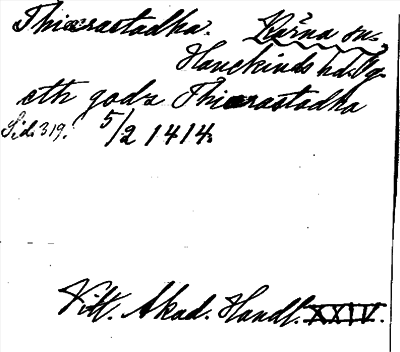 Thiærastadha. Kärna sn.,
Hanekinds hd. Ög.
eth godz Thiærastadha
Sid. 319. 5/2 1414.
Vitt. Akad. Handl. XXIV.